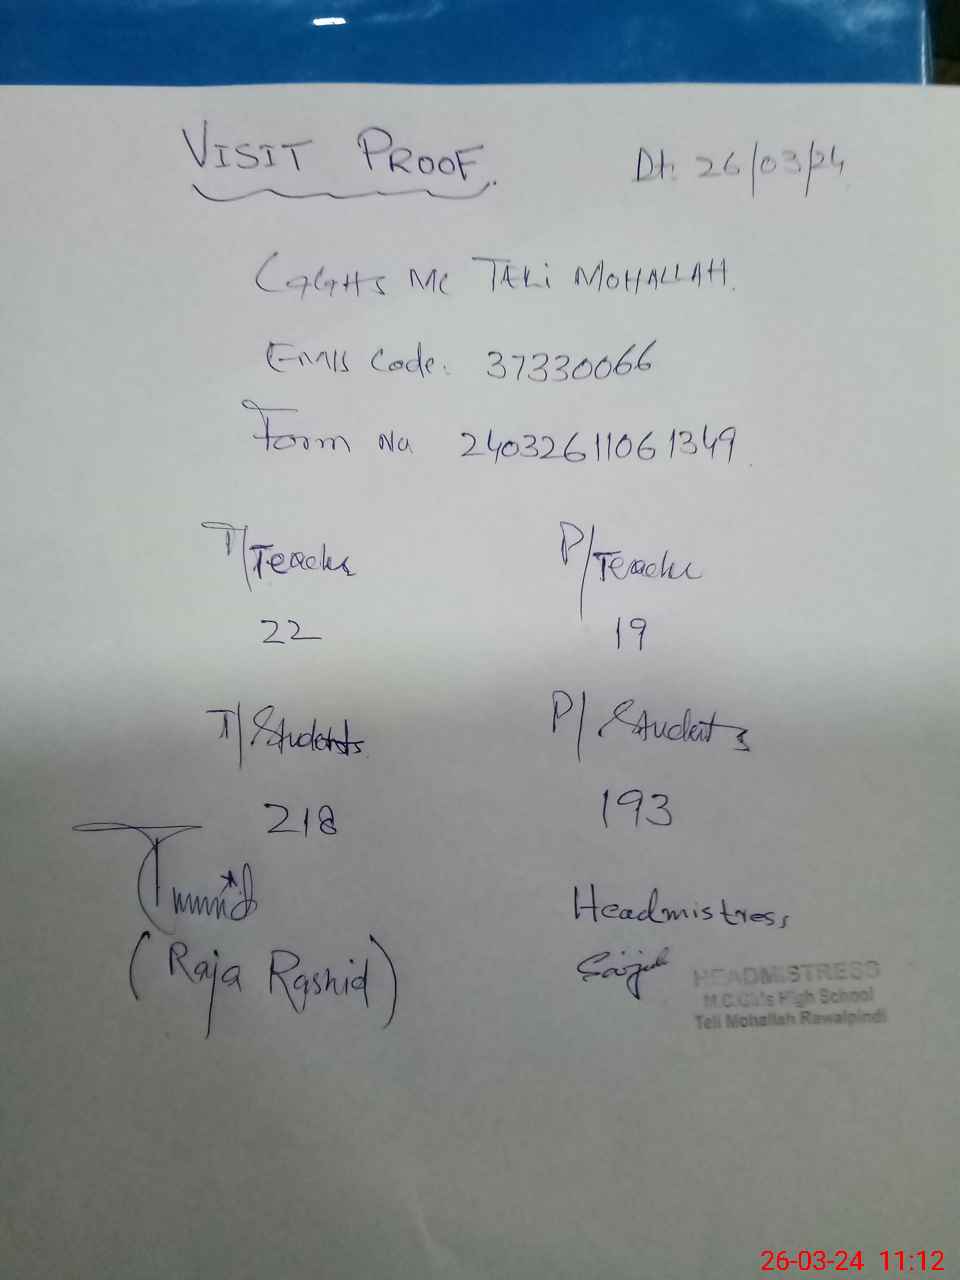 VISIT PROOF. Dt: 26/03/24
GGHS MC TALi MOHALLAH.
EMIS Code: 37330066
Form No 24032611061349.
T/Teacher P/Teacher
22 19
T/Students P/Students
218 193
Headmistress
(Raja Rashid)
HEADMISTRESS
M.C.Girls High School
Teli Mohallah Rawalpindi
26-03-24 11:12